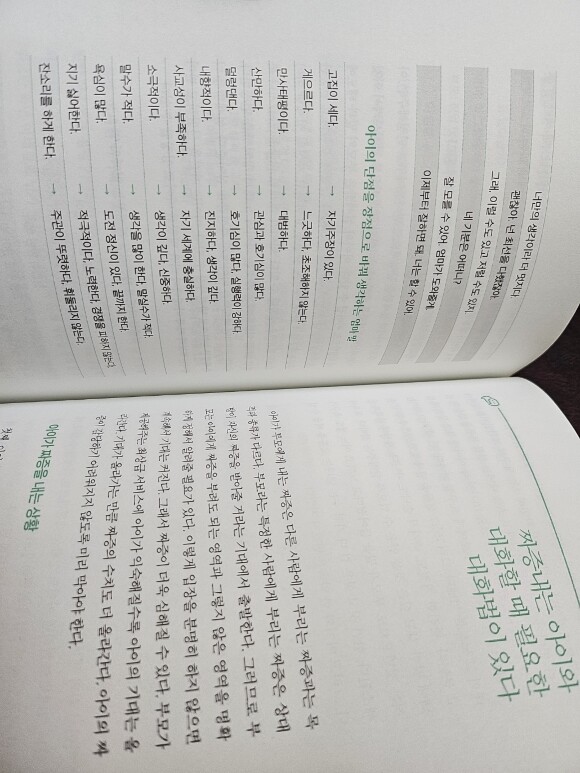 너만의 생각이라 더 멋지다.
괜찮아. 넌 최선을 다했잖아.
그래. 이럴 수도 있고 저럴 수도 있지.
네 기분은 어떠니?
잘 모를 수 있어. 엄마가 도와줄게.
이제부터 잘하면 돼. 너는 할 수 있어.
아이의 단점을 장점으로 바꿔 생각하는 엄마 말
고집이 세다. → 자기주장이 있다.
게으르다. → 느긋하다. 초조해하지 않는다.
만사태평이다. → 대범하다.
산만하다. → 관심과 호기심이 많다.
덜렁댄다. → 호기심이 많다. 실행력이 강하다.
내향적이다. → 진지하다. 생각이 깊다.
사교성이 부족하다. → 자기 세계에 충실하다.
소극적이다. → 생각이 깊다. 신중하다.
말수가 적다. → 생각을 많이 한다. 말실수가 적다.
욕심이 많다. → 도전 정신이 있다. 끝까지 한다.
지기 싫어한다. → 적극적이다. 노력한다. 경쟁을 피하지 않는다.
잔소리를 하게 한다. → 주관이 뚜렷하다. 휘둘리지 않는다.
짜증내는 아이와
대화할 때 필요한
대화법이 있다
아이가 부모에게 내는 짜증은 다른 사람에게 부리는 짜증과는 목
적과 종류가 다르다. 부모라는 특정한 사람에게 부리는 짜증은 상대
방이 자신의 짜증을 받아줄 거라는 기대에서 출발한다. 그러므로 부
모는 아이에게 짜증을 부려도 되는 영역과 그렇지 않은 영역을 명확
하게 정해서 알려줄 필요가 있다. 이렇게 입장을 분명히 하지 않으면
계속해서 기대는 커진다. 그래서 짜증이 더욱 심해질 수 있다. 부모가
제공해주는 최상급 서비스에 아이가 익숙해질수록 아이의 기대는 올
라간다. 기대가 올라가는 만큼 짜증의 수치도 더 올라간다. 아이의 짜
증이 감당하기 어려워지지 않도록 미리 막아야 한다.
아이가 짜증을 내는 상황
첫째,